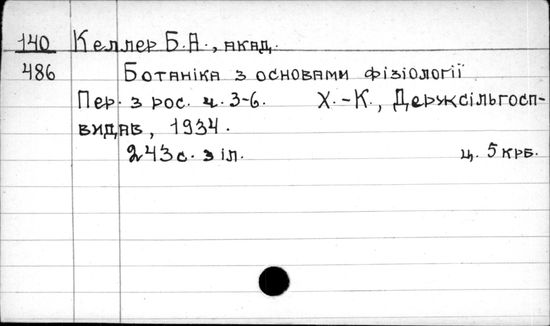 140 Келлер Б.А., акад.
486 Ботаніка з основами фізіології
Пер. з рос. ч. 3-6. Х.-К., Держсільгосп-
видав, 1934.
243 с. з іл. ц. 5 крб.